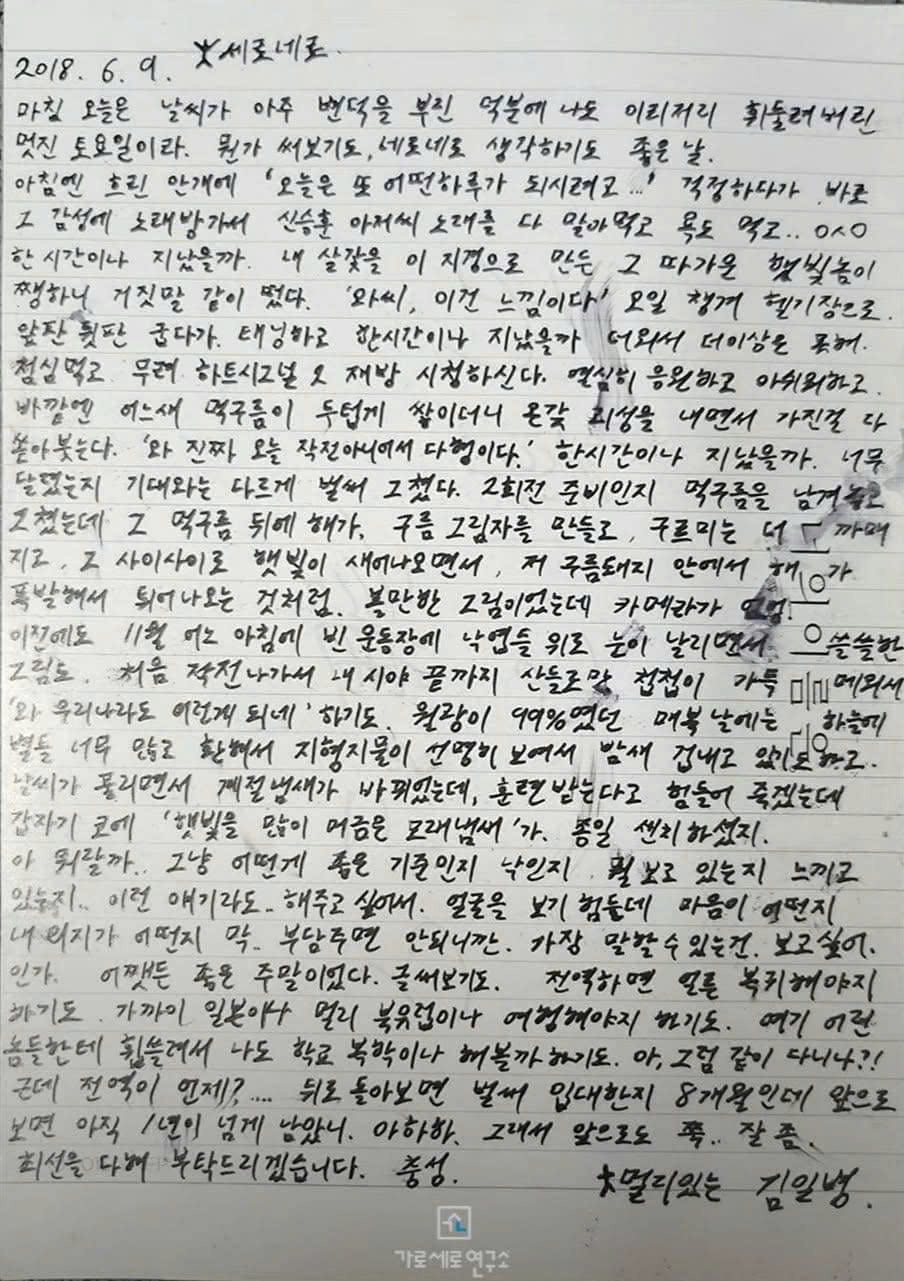 2018. 6. 9. ☆세로네로.
마침 오늘은 날씨가 아주 변덕을 부린 덕분에 나도 이리저리 휘둘려버린
멋진 토요일이라. 뭔가 써보기도, 네로네로 생각하기도 좋은 날.
아침엔 흐린 안개에 '오늘은 또 어떤하루가 되시려고...' 걱정하다가 바로
그 감성에 노래방가서 신승훈 아저씨 노래를 다 말아먹고 욕도 먹고.. ㅇㅅㅇ
한 시간이나 지났을까. 내 살갗을 이 지경으로 만든 그 따가운 햇빛놈이
쨍하니 거짓말 같이 떴다. '와씨, 이건 느낌이다' 오일 챙겨 헬기장으로.
앞판 뒷판 굽다가. 태닝하고 한시간이나 지났을까 더워서 더이상은 못해.
점심먹고 무려 하트시그널 2 재방 시청하신다. 열심히 응원하고 아쉬워하고.
바깥엔 어느새 먹구름이 두텁게 쌓이더니 온갖 괴성을 내면서 가진걸 다
쏟아붓는다. '와 진짜 오늘 작전아니어서 다행이다.' 한시간이나 지났을까. 너무
달렸는지 기대와는 다르게 벌써 그쳤다. 2회전 준비인지 먹구름을 남겨놓고
그쳤는데 그 먹구름 뒤에 해가. 구름 그림자를 만들고, 구르미는 더 까매
지고, 그 사이사이로 햇빛이 새어나오면서, 저 구름돼지 안에서 해가
폭발해서 튀어나오는 것처럼. 볼만한 그림이었는데 카메라가
이전에도 11월 어느 아침에 빈 운동장에 낙엽들 위로 눈이 날리면서 쓸쓸한
그림도. 처음 작전나가서 내 시야 끝까지 산들로만 첩첩이 가득 메워서
'와 우리나라도 이런게 되네' 하기도. 월광이 99%였던 매복 날에는 하늘에
별들 너무 많고 환해서 지형지물이 선명히 보여서 밤새 겁내고 있기도하고..
날씨가 풀리면서 계절냄새가 바뀌었는데, 훈련받는다고 힘들어 죽겠는데
갑자기 코에 '햇빛을 많이 머금은 모래냄새'가. 종일 센치하셨지.
아 뭐랄까.. 그냥 어떤게 좋은 기준인지 낙인지 뭘 보고 있는지 느끼고
있는지.. 이런 얘기라도.. 해주고 싶어서. 얼굴을 보기 힘들데 마음이 어떤지
내 의지가 어떤지 막.. 부담주면 안되니깐. 가장 말할수있는건. 보고싶어.
인가. 어쨋든 좋은 주말이었다. 글써보기도. 전역하면 얼른 복귀해야지
하기도. 가까이 일본이나 멀리 북유럽이나 여행해야지 하기도. 여기 어린
놈들한테 휩쓸려서 나도 학교 복학이나 해볼까하기도. 아, 그럼 같이 다니나?!
근데 전역이 언제?.... 뒤로 돌아보면 벌써 입대한지 8개월인데 앞으로
보면 아직 1년이 넘게 남았니. 아하하. 그래서 앞으로도 쭉.. 잘 좀.
최선을 다해 부탁드리겠습니다. 충성.
☆멀리있는 김일병.
가로세로연구소